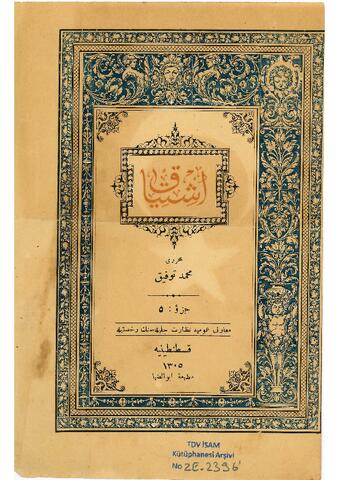 اشتياق
محرری
محمد توفيق
جزؤ : ٥
معارف عموميه نظارت جليله‌سنك رخصتيله
قسطنطينيه
١٣٠٥
مطبعهٔ ابوالضيا
TDV İSAM
Kütüphanesi Arşivi
No 2E.2396